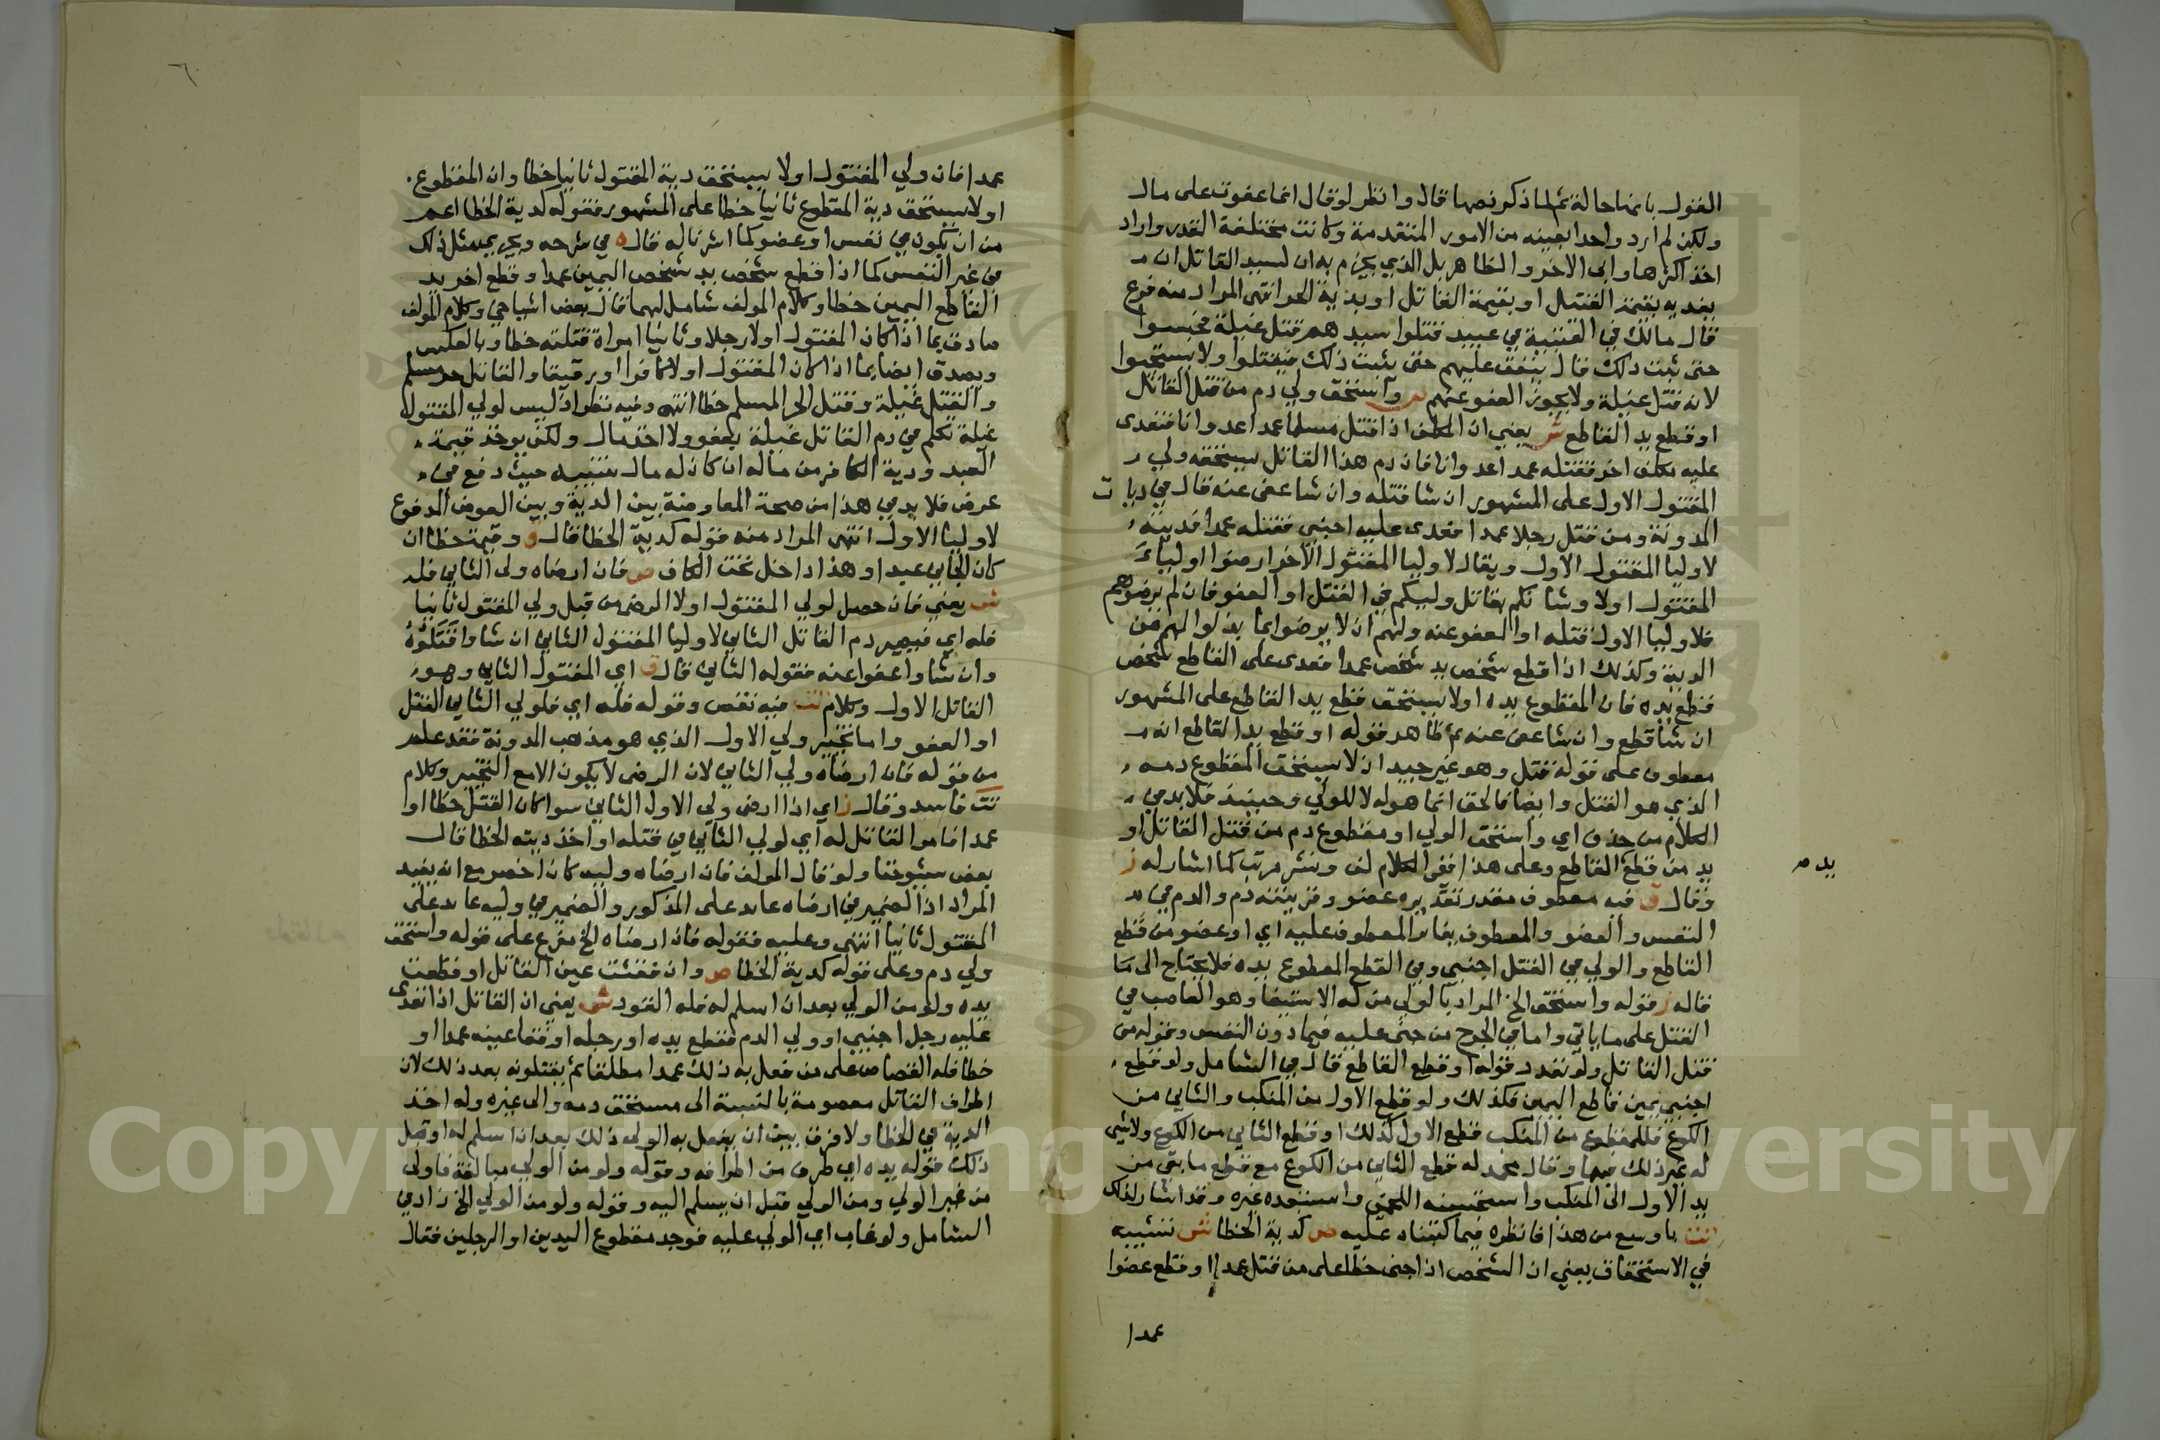 القول بانها حالة ثم لما ذكر نصها قال وانظر لو قال انما عفوت على مال
ولكن لم ارد واحدا بعينه من الامور المتقدمة وكانت مختلفة القدر واراد
اخذ اكثرها وابى الاخر والظاهر بل الذي يجزم به ان لسيد القاتل ان
يفديه بقيمة القتيل او بقيمة القاتل او بدية الحر انتهى المراد منه فرع
قال مالك في العتبية في عبيد قتلوا سيدهم قتل غيلة فحبسوا
حتى ثبت ذلك قال ينفق عليهم حتى يثبت ذلك فيقتلوا ولا يستحيوا
لانه قتل غيلة ولا يجوز العفو عنهم ص واستحق ولي دم من قتل القاتل
او قطع يد القاطع ش يعني ان المكلف اذا قتل مسلما عمدا عدوانا فتعدى
عليه مكلف اخر فقتله عمدا عدوانا فان دم هذا القاتل يستحقه ولي
المقتول الاول على المشهور ان شا قتله وان شا عفى عنه قال في ديات
المدونة ومن قتل رجلا عمدا فعدى عليه اجنبي فقتله عمدا فديته
لاوليا المقتول الاول ويقال لاوليا المقتول الاخر ارضوا اولياء
المقتول اولا وشانكم بقاتل وليكم في القتل او العفو فان لم يرضوهم
فلاوليا الاول قتله او العفو عنه ولهم ان لا يرضوا بما بذلوا لهم من
الدية وكذلك اذا قطع شخص يد شخص عمدا فعدى على القاطع شخص
فقطع يده فان المقطوع يده اولا يستحق قطع يد القاطع على المشهور
ان شا قطع وان شا عفى عنه ثم ظاهر قوله او قطع يد القاطع انه
معطوف على قوله قتل وهو غير جيد اذ لا يستحق المقطوع دمه
الذي هو القتل وايضا فالحق انما هو له لا للولي وحينئذ فلا بد في
الكلام من حذف اي واستحق الولي او مقطوع دم من قتل القاتل او
يد من قطع القاطع وعلى هذا ففي الكلام لف ونشر مرتب كما اشار له ز
يد صح
وقال ق فيه معطوف مقدر تقديره عضو وقرينته دم والدم في
النفس والعضو والمعطوف يغاير المعطوف عليه اي او عضو من قطع
القاطع والولي في القتل اجنبي وفي القطع المقطوع يده فلا يحتاج الى ما
قاله ز وقوله واستحق الخ المراد بالولي من له الاستيفا وهو العاصب في
القتل على ما ياتي واما في الجرح من جنى عليه فيما دون النفس وقوله من
قتل القاتل ولو تعدد قوله او قطع القاطع قال في الشامل ولو قطع
اجنبي يمين قاطع اليمين فكذلك ولو قطع الاول من المنكب والثاني من
الكوع فللمقطوع من المنكب قطع الاول كذلك او قطع الثاني من الكوع ولا شي
له غير ذلك فيها وقال محمد له قطع الثاني من الكوع مع قطع ما بقى من
يد الاول الى المنكب واستحسنه اللخمي واستبعده غيره وقد اشار لذلك
تت باوسع من هذا فانظره فيما كتبناه عليه ص كدية الخطا ش تشبيه
في الاستحقاق يعني ان الشخص اذا جنى خطا على من قتل عمدا او قطع عضوا
عمدا
٦
عمدا فان ولي المقتول اولا يستحق دية المقتول ثانيا خطا وان المقطوع
اولا يستحق دية المقطوع ثانيا خطا على المشهور فقوله كدية الخطا اعم
من ان يكون في نفس او عضو كما اشرنا له قال ه في شرحه ويجري مثل ذلك
في غير النفس كما اذا قطع شخص يد شخص اليمين عمدا وقطع اخر يد
القاطع اليمين خطا وكلام المولف شامل لهما قال بعض اشياخي وكلام المولف
صادق بما اذا كان المقتول اولا رجلا وثانيا امراة قتلته خطا وبالعكس
ويصدق ايضا بما اذا كان المقتول اولا كافرا او رقيقا والقاتل حر مسلم
والقتل غيلة وقتل الحر المسلم خطا انتهى وفيه نظر اذ ليس لولي المقتول
غيلة تكلم في دم القاتل غيلة بعفو ولا اخذ مال ولكن يوخذ قيمة
العبد ودية الكافر من ماله ان كان له مال تنبيه حيث دفع في
عرض فلا بد في هذا من صحة المعاوضة بين الدية وبين العوض المدفوع
لاوليا الاول انتهى المراد منه قوله كدية الخطا قال و وقيمة خطا ان
كان الجاني عبدا وهذا داخل تحت الكاف ص فان ارضاه ولي الثاني فله
ش يعني فان حصل لولي المقتول اولا الرضى من قبل ولي المقتول ثانيا
فله اي فيصير دم القاتل الثاني لاوليا المقتول الثاني ان شاوا قتلوه
وان شاوا عفوا عنه فقوله الثاني قال ق اي المقتول الثاني وهو
القاتل الاول وكلام تت فيه نقص وقوله فله اي فلولي الثاني القتل
او العفو واما تخيير ولي الاول الذي هو مذهب المدونة فقد علم
من قوله فان ارضاه ولي الثاني لان الرضى لا يكون الا مع التخيير وكلام
تت فاسد وقال ز اي اذا ارضى ولي الاول الثاني سوا كان القتل خطا او
عمدا فامر القاتل له اي لولي الثاني في قتله او اخذ ديته الخطا قال
بعض شيوخنا ولو قال المولف فان ارضاه وليه كان اخصر مع انه يفيد
المراد اذ الضمير في ارضاه عايد على المذكور والضمير في وليه عايد على
المقتول ثانيا انتهى وعليه فقوله فان ارضاه الخ مفرع على قوله واستحق
ولي دم وعلى قوله كدية الخطا ص وان فقئت عين القاتل او قطعت
يده ولو من الولي بعد ان اسلم له فله القود ش يعني ان القاتل اذا تعدى
عليه رجل اجنبي او ولي الدم فقطع يده او رجله او فقا عينه عمدا او
خطا فله القصاص على من فعل به ذلك عمدا مطلقا ثم يقتلونه بعد ذلك لان
اطراف القاتل معصومة بالنسبة الى مستحق دمه والى غيره وله اخذ
الدية في الخطا ولا فرق بين ان يفعل به الولي ذلك بعد ان اسلم له او قبل
ذلك قوله يده اي طرف من اطرافه وقوله ولو من الولي مبالغة فاولى
من غير الولي ومن الولي قبل ان يسلم اليه وقوله ولو من الولي الخ زاد في
الشامل ولو غاب اي الولي عليه فوجد مقطوع اليدين او الرجلين فقال